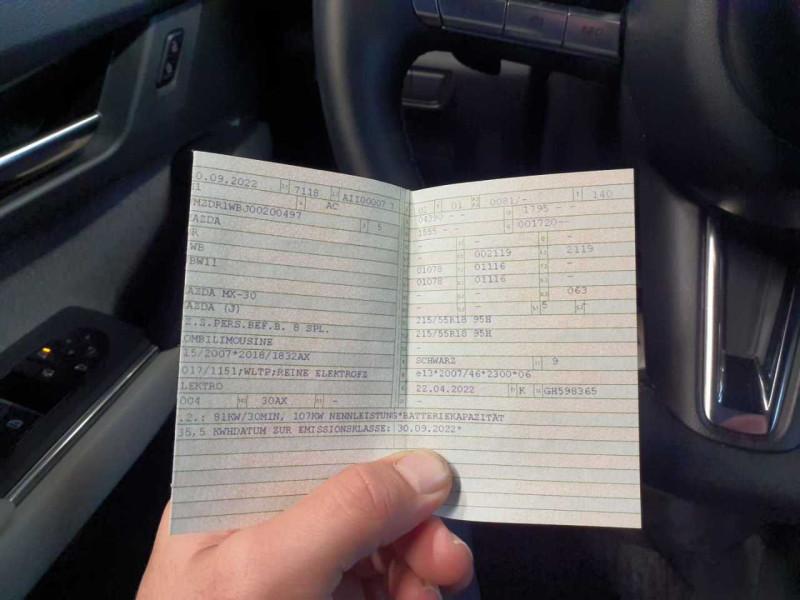 0.09.2022 7118 AII00007 1
AC
MZDR1WBJ00200497
AZDA 5
R
WB
BW11
AZDA MX-30
AZDA (J)
Z.Z.PERS.BEF.B. 8 SPL.
OMBILIMOUSINE
15/2007*2018/1832AX
017/1151;WLTP;REINE ELEKTROFZ
LEKTRO
004 30AX -
.2.: 81KW/30MIN, 107KW NENNLEISTUNG*BATTERIEKAPAZITÄT
35,5 KWHDATUM ZUR EMISSIONSKLASSE: 30.09.2022*
01 0081/- 140
04290 - - 1795 - -
1555 - - 001720--
- - -
- 002119 2119
01078 01116 -
01078 01116 -
- - 063
- - 5
215/55R18 95H
215/55R18 95H
SCHWARZ 9
e13*2007/46*2300*06
22.04.2022 K GH598365